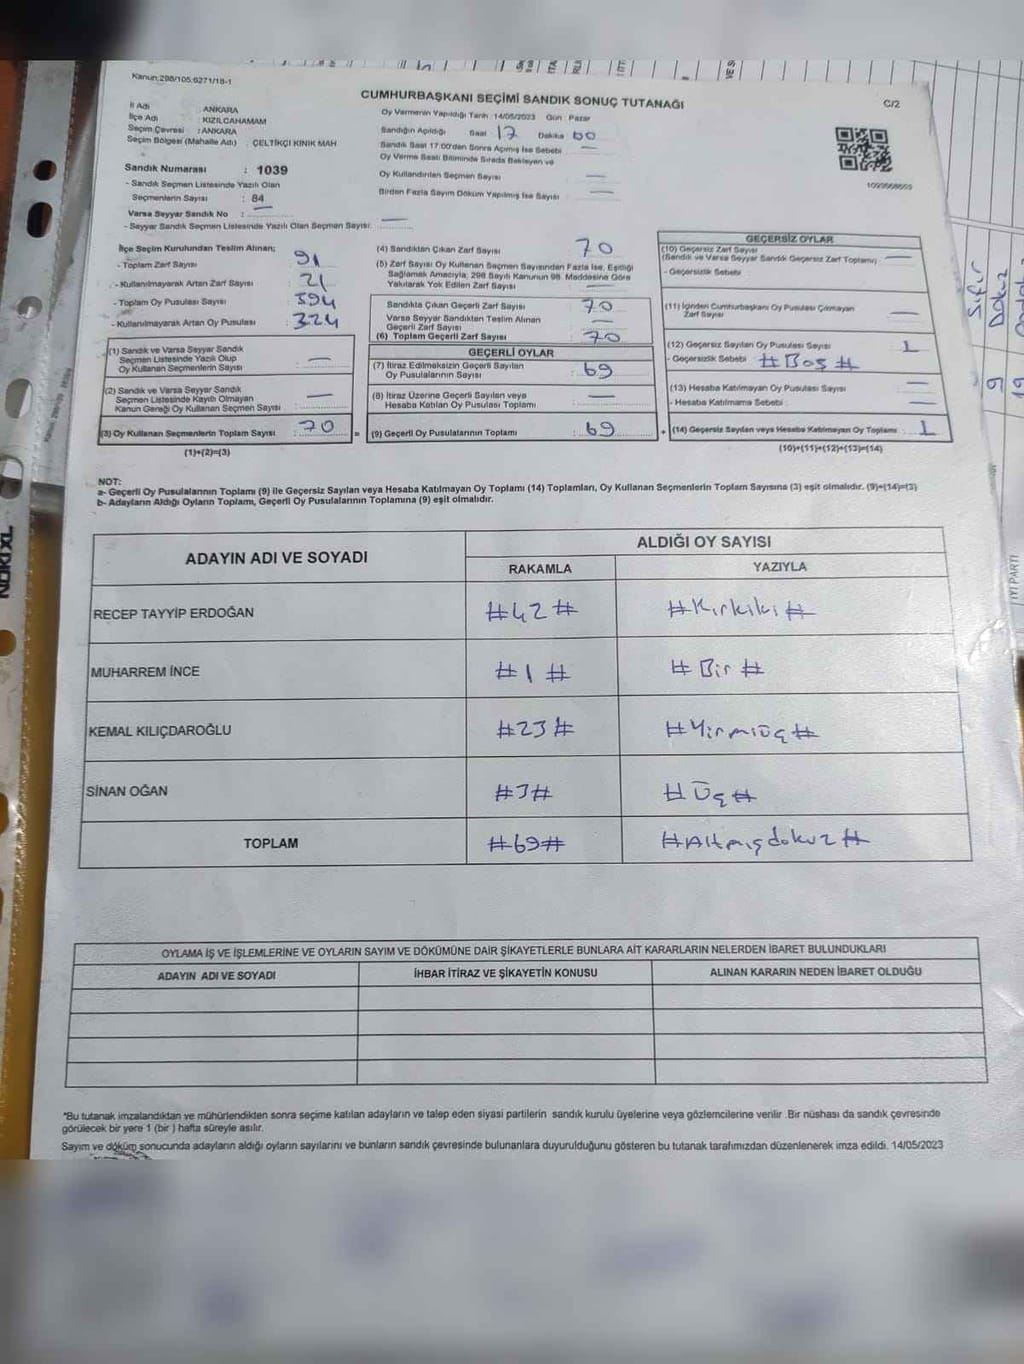 Kanun:298/105,6271/18-1
CUMHURBAŞKANI SEÇİMİ SANDIK SONUÇ TUTANAĞI
C/2
İl Adı : ANKARA
İlçe Adı : KIZILCAHAMAM
Seçim Çevresi : ANKARA
Seçim Bölgesi (Mahalle Adı) : ÇELTİKÇİ KINIK MAH
Oy Vermenin Yapıldığı Tarih :14/05/2023 Gün : Pazar
Sandığın Açıldığı Saat 17 Dakika 00
Sandık Saat 17:00'den Sonra Açılmış İse Sebebi —
Oy Verme Saati Bitiminde Sırada Bekleyen ve
Oy Kullandırılan Seçmen Sayısı —
Birden Fazla Sayım Döküm Yapılmış İse Sayısı —
Sandık Numarası : 1039
- Sandık Seçmen Listesinde Yazılı Olan
Seçmenlerin Sayısı : 84
Varsa Seyyar Sandık No : —
- Seyyar Sandık Seçmen Listesinde Yazılı Olan Seçmen Sayısı: —
İlçe Seçim Kurulundan Teslim Alınan;
- Toplam Zarf Sayısı : 91
- Kullanılmayarak Artan Zarf Sayısı : 21
- Toplam Oy Pusulası Sayısı : 394
- Kullanılmayarak Artan Oy Pusulası : 324
(1) Sandık ve Varsa Seyyar Sandık
Seçmen Listesinde Yazılı Olup
Oy Kullanan Seçmenlerin Sayısı : —
(2) Sandık ve Varsa Seyyar Sandık
Seçmen Listesinde Kayıtlı Olmayan
Kanun Gereği Oy Kullanan Seçmen Sayısı : —
(3) Oy Kullanan Seçmenlerin Toplam Sayısı : 70
(1)+(2)=(3)
(4) Sandıktan Çıkan Zarf Sayısı : 70
(5) Zarf Sayısı Oy Kullanan Seçmen Sayısından Fazla İse, Eşitliği
Sağlamak Amacıyla, 298 Sayılı Kanunun 98. Maddesine Göre
Yakılarak Yok Edilen Zarf Sayısı : —
Sandıkta Çıkan Geçerli Zarf Sayısı : 70
Varsa Seyyar Sandıktan Teslim Alınan
Geçerli Zarf Sayısı : —
(6) Toplam Geçerli Zarf Sayısı : 70
GEÇERLİ OYLAR
(7) İtiraz Edilmeksizin Geçerli Sayılan
Oy Pusulalarının Sayısı : 69
(8) İtiraz Üzerine Geçerli Sayılan veya
Hesaba Katılan Oy Pusulası Toplamı : —
= (9) Geçerli Oy Pusulalarının Toplamı : 69
GEÇERSİZ OYLAR
(10) Geçersiz Zarf Sayısı
(Sandık ve Varsa Seyyar Sandık Geçersiz Zarf Toplamı) : —
- Geçersizlik Sebebi :
(11) İçinden Cumhurbaşkanı Oy Pusulası Çıkmayan
Zarf Sayısı : —
(12) Geçersiz Sayılan Oy Pusulası Sayısı : 1
- Geçersizlik Sebebi : #Boş#
(13) Hesaba Katılmayan Oy Pusulası Sayısı : —
- Hesaba Katılmama Sebebi : —
+ (14) Geçersiz Sayılan veya Hesaba Katılmayan Oy Toplamı : 1
(10)+(11)+(12)+(13)=(14)
NOT:
a- Geçerli Oy Pusulalarının Toplamı (9) ile Geçersiz Sayılan veya Hesaba Katılmayan Oy Toplamı (14) Toplamları, Oy Kullanan Seçmenlerin Toplam Sayısına (3) eşit olmalıdır. (9)+(14)=(3)
b- Adayların Aldığı Oyların Toplamı, Geçerli Oy Pusulalarının Toplamına (9) eşit olmalıdır.
ADAYIN ADI VE SOYADI
ALDIĞI OY SAYISI
RAKAMLA YAZIYLA
RECEP TAYYİP ERDOĞAN #42# #Kırkiki#
MUHARREM İNCE #1# #Bir#
KEMAL KILIÇDAROĞLU #23# #Yirmiüç#
SİNAN OĞAN #3# #Üç#
TOPLAM #69# #Altmışdokuz#
OYLAMA İŞ VE İŞLEMLERİNE VE OYLARIN SAYIM VE DÖKÜMÜNE DAİR ŞİKAYETLERLE BUNLARA AİT KARARLARIN NELERDEN İBARET BULUNDUKLARI
ADAYIN ADI VE SOYADI İHBAR İTİRAZ VE ŞİKAYETİN KONUSU ALINAN KARARIN NEDEN İBARET OLDUĞU
*Bu tutanak imzalandıktan ve mühürlendikten sonra seçime katılan adayların ve talep eden siyasi partilerin sandık kurulu üyelerine veya gözlemcilerine verilir .Bir nüshası da sandık çevresinde
görülecek bir yere 1 (bir ) hafta süreyle asılır.
Sayım ve döküm sonucunda adayların aldığı oyların sayılarını ve bunların sandık çevresinde bulunanlara duyurulduğunu gösteren bu tutanak tarafımızdan düzenlenerek imza edildi. 14/05/2023
NOKI XL
Sıfır
Dokuz
9
19
İYİ PARTİ